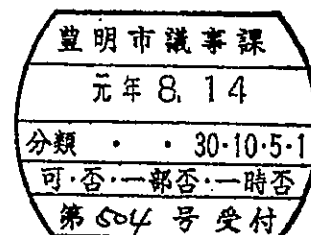 豊明市議事課
元年 8. 14
分類 ・ ・ 30・10・5・1
可・否・一部否・一時否
第 504 号 受付